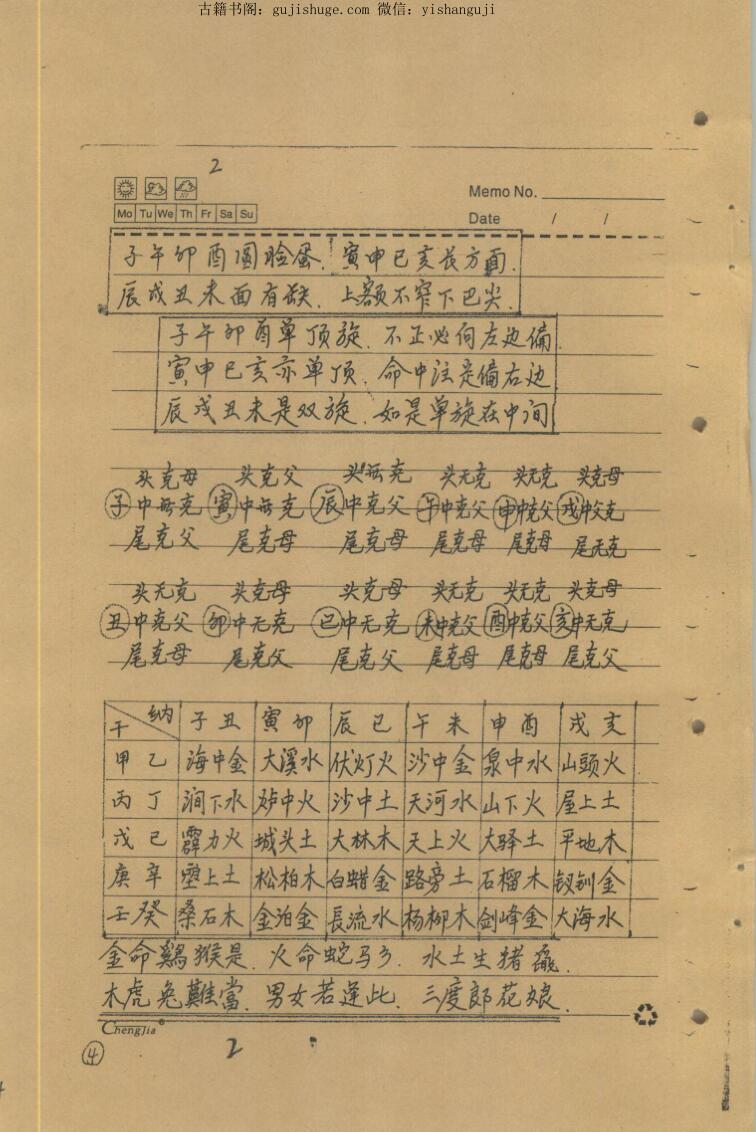 古籍书阁：gujishuge.com 微信：yishanguji
2
Memo No.
Mo Tu We Th Fr Sa Su
Date / /
子午卯酉圆脸蛋．寅申巳亥长方面．
辰戌丑未面有缺．上额不窄下巴尖．
子午卯酉单顶旋．不正必向左边偏．
寅申巳亥亦单顶．命中注定偏右边
辰戌丑未是双旋．如是单旋在中间
头克母 头克父 头無克 头无克 头无克 头克母
子 中無克 寅 中無克 辰 中克父 午 中克父 申 中克父 戌 中父克
尾克父 尾克母 尾克母 尾克母 尾克母 尾无克
头无克 头克母 头克母 头无克 头无克 头克母
丑 中克父 卯 中无克 巳 中无克 未 中克父 酉 中克父 亥 中无克
尾克母 尾克父 尾克父 尾克母 尾克母 尾克父
干 纳 子丑 寅卯 辰巳 午未 申酉 戌亥
甲乙 海中金 大溪水 伏灯火 沙中金 泉中水 山頭火
丙丁 涧下水 炉中火 沙中土 天河水 山下火 屋上土
戊己 霹力火 城头土 大林木 天上火 大驿土 平地木
庚辛 壁上土 松柏木 白蜡金 路旁土 石榴木 钗钏金
壬癸 桑石木 金泊金 長流水 杨柳木 剑峰金 大海水
金命鷄猴是．火命蛇马乡．水土生猪鼠．
木虎兔難當．男女若逢此．三度郎花娘．
ChengJia®
④ 2